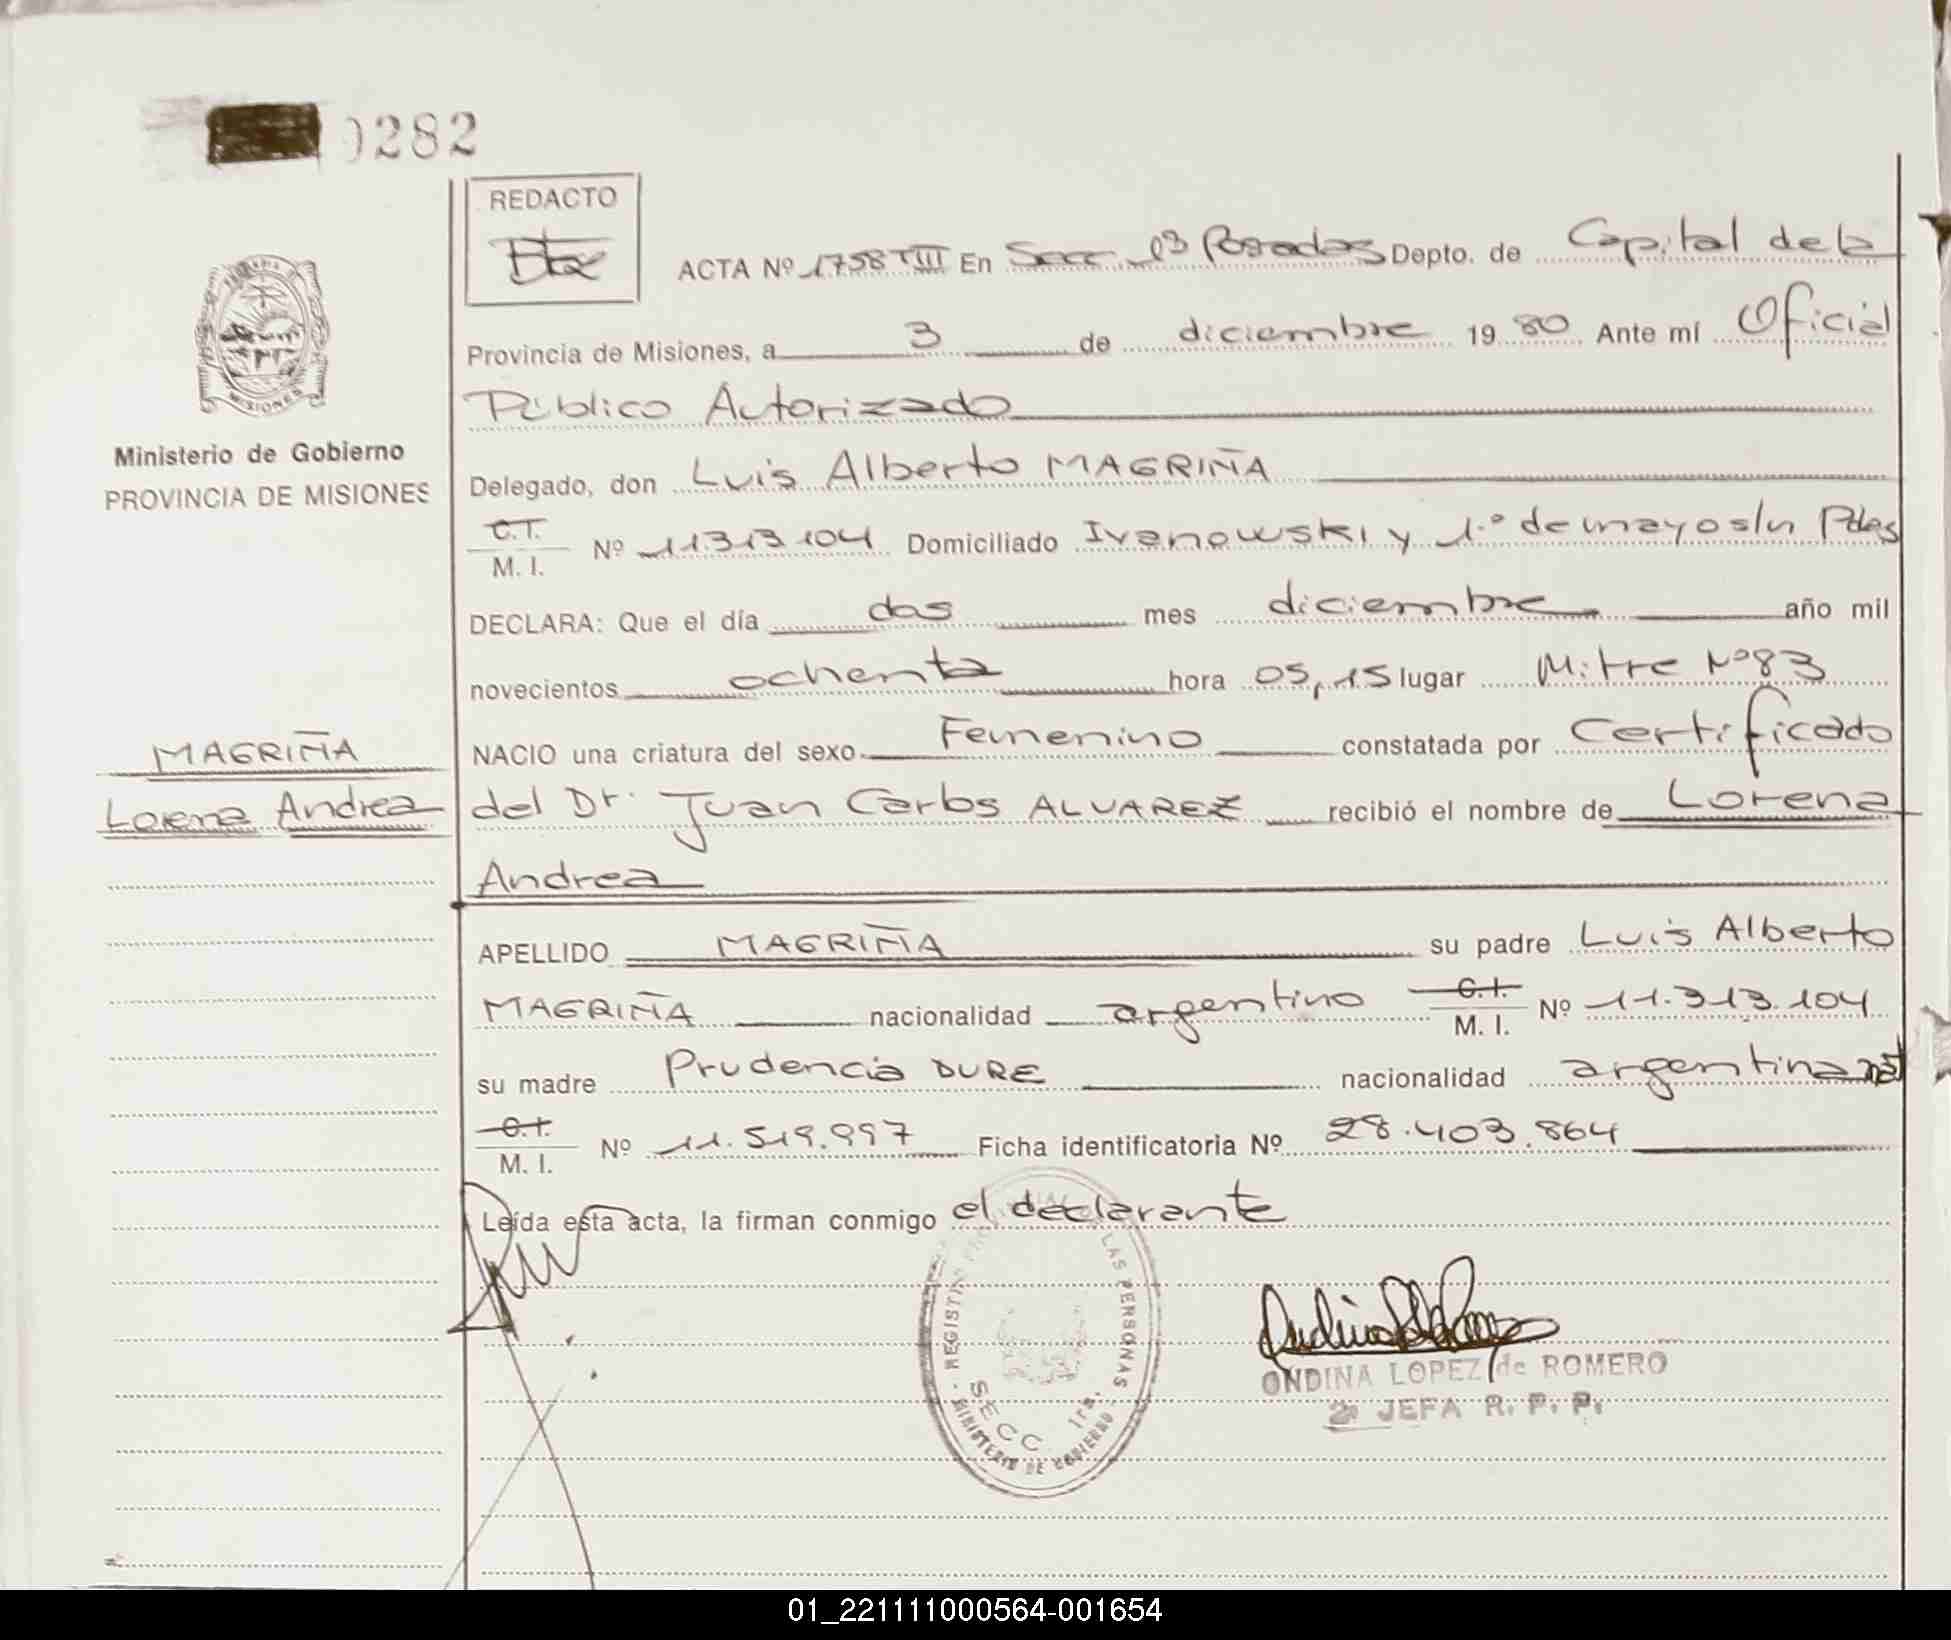 0282
REDACTO
ACTA Nº 1758 TIII En Secc 1ª Posadas Depto. de Capital de la
Provincia de Misiones, a 3 de diciembre 1980 Ante mí Oficial
Público Autorizado
MISIONES
Ministerio de Gobierno
PROVINCIA DE MISIONES
Delegado, don Luis Alberto MAGRIÑA
C.I.
M. I. Nº 11.313.104 Domiciliado Ivanowski y 1.º de mayo s/n Pdas
DECLARA: Que el día dos mes diciembre año mil
novecientos ochenta hora 05,15 lugar Mitre Nº 83
MAGRIÑA
Lorena Andrea
NACIO una criatura del sexo Femenino constatada por Certificado
del Dr. Juan Carlos ALVAREZ recibió el nombre de Lorena
Andrea
APELLIDO MAGRIÑA su padre Luis Alberto
MAGRIÑA nacionalidad argentino C.I.
M. I. Nº 11.313.104
su madre Prudencia DURE nacionalidad argentina nat
C.I.
M. I. Nº 11.519.997 Ficha identificatoria Nº 28.403.864
Leída esta acta, la firman conmigo el declarante
REGISTRO PROVINCIAL DE LAS PERSONAS
SECC 1ra.
MINISTERIO DE GOBIERNO
ONDINA LOPEZ de ROMERO
JEFA R. P. P.
01_221111000564-001654